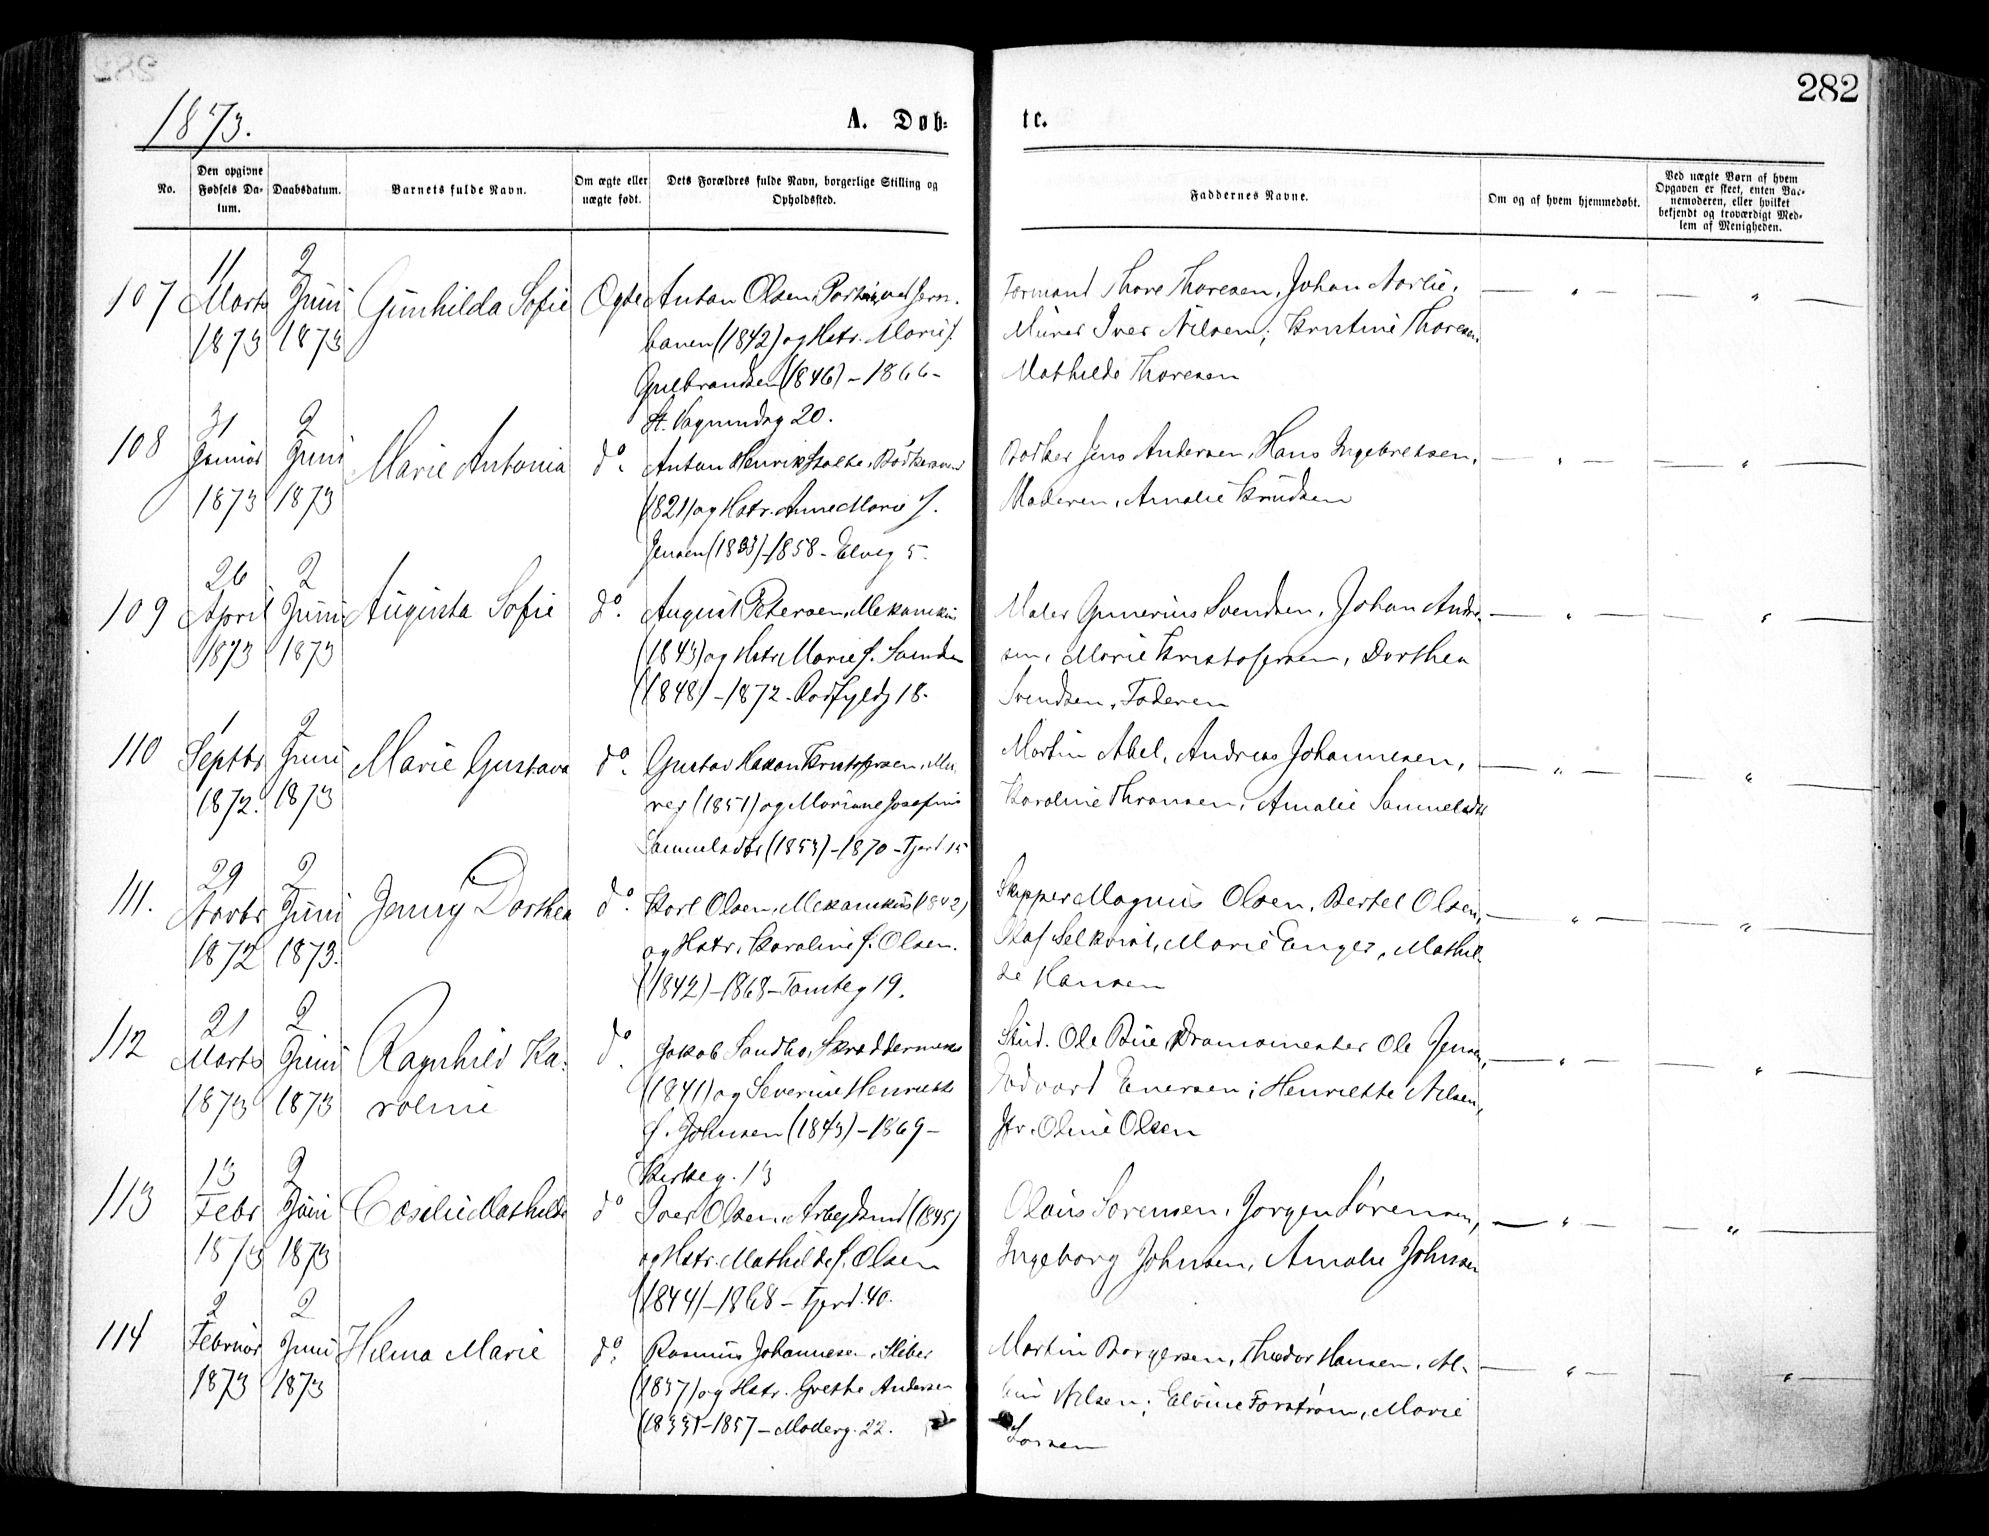 282
1873.
A. Døb-
te.
No.
Den opgivne Fødsels Da-
tum.
Daabsdatum.
Barnets fulde Navn.
Om ægte eller
uægte født.
Dets Forældres fulde Navn, borgerlige Stilling og
Opholdssted.
Faddernes Navne.
Om og af hvem hjemmedøbt.
Ved uægte Børn af hvem
Opgaven er skeet, enten Bar-
nemoderen, eller hvilket
bekjendt og troværdigt Med-
lem af Menigheden.
107
11
Marts
1873
2
Juni
1873
Gunhilda Sofie
Ægte
Anton Olsen, ved Jern-
banen (1842) og Hstr. Marie f.
Gulbrandsen (1846) - 1866 -
20.
Formand Thore Thoresen, Johan Aarlie,
Murer Iver Nilsen; Kristine Thoresen,
Mathilde Thoresen
108
31
Januar
1873
2
Juni
1873
Marie Antonia
do.
Anton Henrik
(1821) og Hstr. Anne Marie f.
Jensen (1833) - 1858 - Elveg 5.
Bødker Jens Andersen, Hans Ingebretsen,
Moderen, Amalie Knudsen
109
26
April
1873
2
Juni
1873
Augusta Sofie
do.
August Petersen, Mekanikus
(1843) og Hstr. Marie f.
(1848) - 1872 - 18.
Maler Gunerius Svendsen, Johan Andre-
sen, Marie Kristofersen, Dorthea
Svendsen, Faderen
110
1
Septbr
1872.
2
Juni
1873
Marie Gustava
do.
Gustav Hakon Kristofersen, Mu-
rer (1851) og Mariane Josefine
Samuelsdtr (1853) - 1870 - Fjerd 15
Martin Abel, Andreas Johannesen,
Karoline Thronsen, Amalie Samuelsdtr
111.
29
Novbr
1872
2
Juni
1873.
Jenny Dorthea
do.
Karl Olsen, Mekanikus (1842)
og Hstr. Karoline f. Olsen.
(1842) - 1868 - Tomteg 19.
Skipper Magnus Olsen, Bertel Olsen,
Olaf Selkvist, Marie Enger, Mathil-
de Hansen
112
21
Marts
1873
2
Juni
1873
Ragnhild Ka-
roline
do.
Jakob Sandbo, Skræddermester
(1841) og Severine Henriette
f. Johnsen (1843) - 1869 -
Kirkeg. 13
Stud. Ole Bue, Ole Jensen,
Edvard Enersen; Henriette Nilsen,
Jfr. Oline Olsen
113
13
Febr
1873
2
Juni
1873
Cæsilie Mathilde
do
Iver Olsen, Arbejdsmd (1845)
og Hstr. Mathilde f. Olsen
(1844) - 1868 - Fjerd. 40.
Olaus Sørensen, Jørgen Sørensen,
Ingeborg Johnsen, Amalie Johnsen
114
2
Februar
1873
2
Juni
1873
Hilma Marie
do.
Rasmus Johannesen, Sliber
(1837) og Hstr. Grethe Andersen
(1833) - 1857 - Møllerg. 22.
Martin Borgersen, Theodor Hansen, Al-
bin Nilsen; Elvine Forstrøm, Marie
Larsen